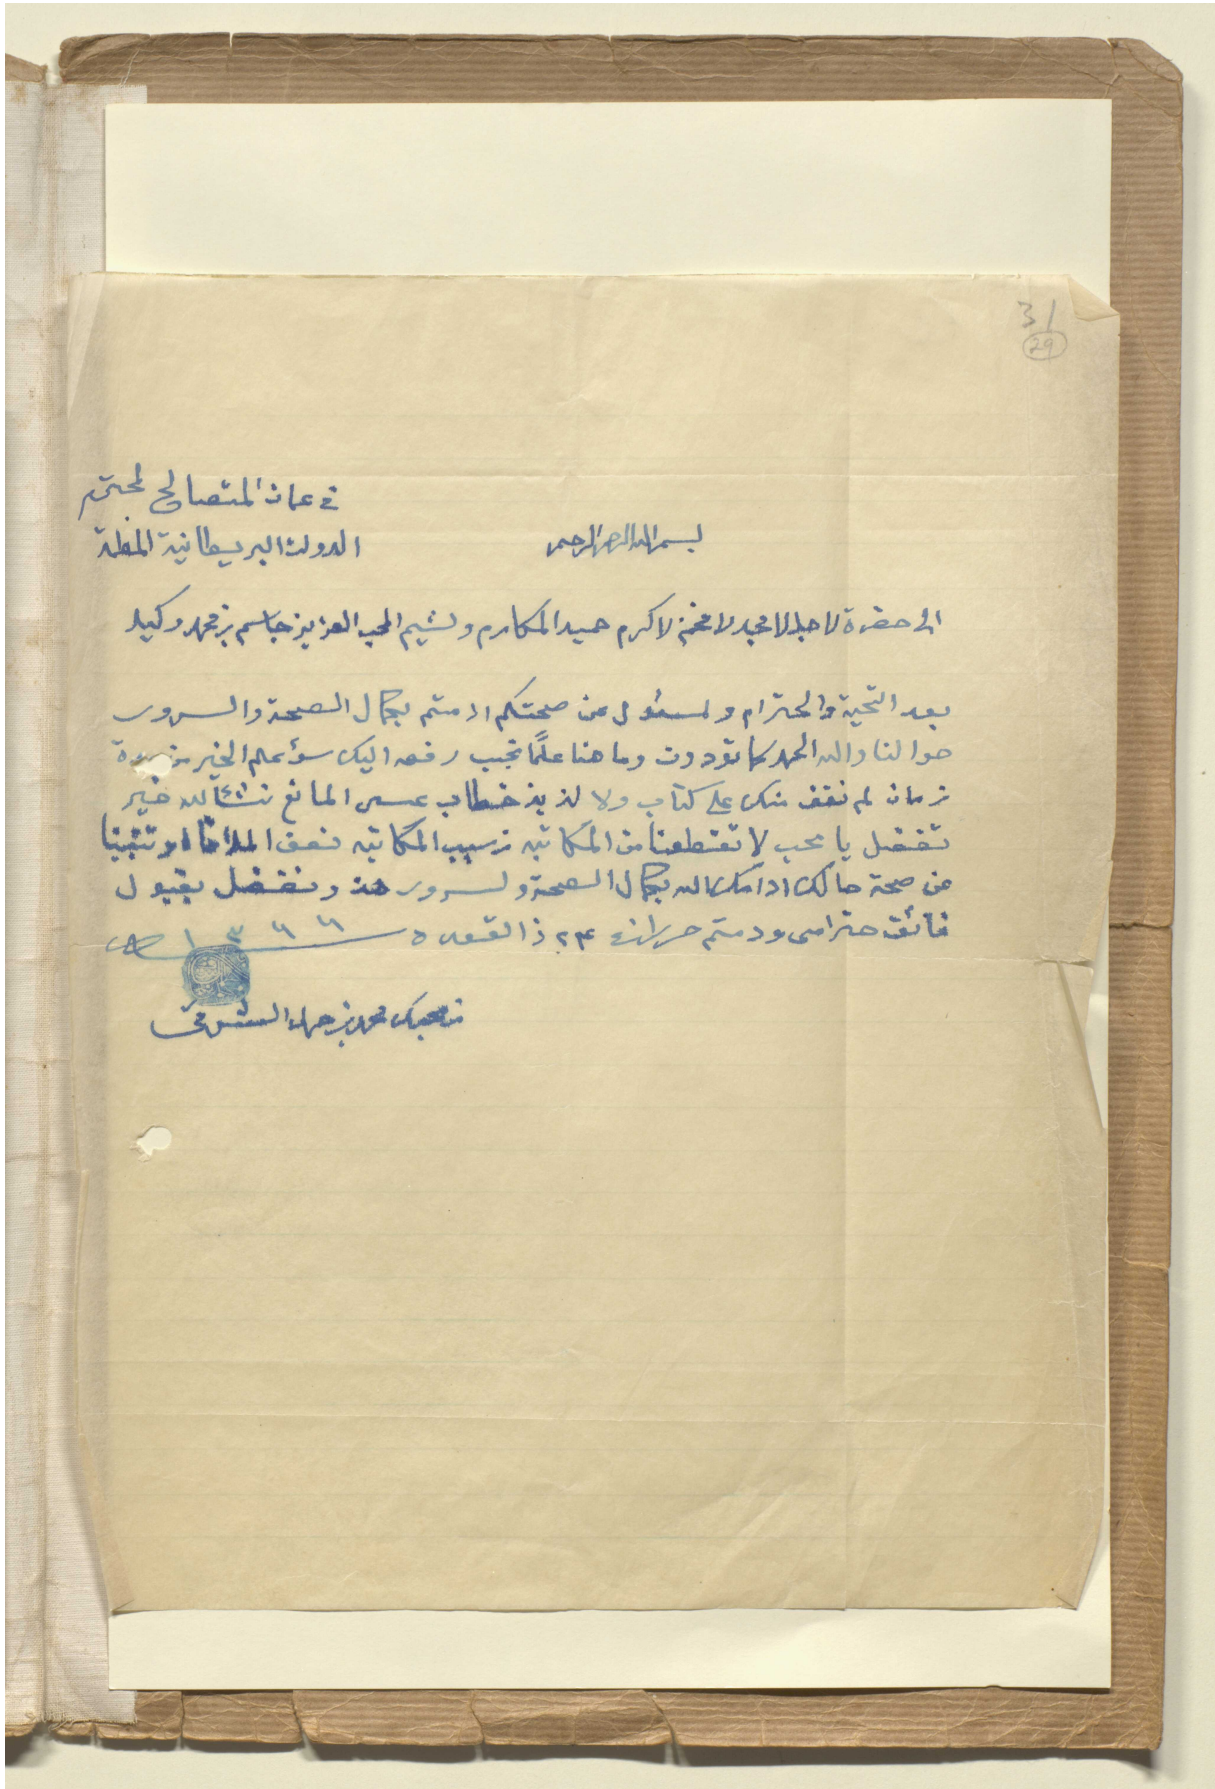 31
29
في عمان المتصالح المحترم
بسم الله الرحمن الرحيم
الدولت البريطانية المغظمة
الى حضرة لاجل الامجد لافخم لاكرم حميد المكارم ولشيم المحب العزيز جاسم بن محمد وكيل
بعد التحية والحترام ولسئول عن صحتكم ادمتم بكمال الصحة والسرور
حوالنا والله الحمد كما تودون وما هنا علمًا نجب رفعه اليك سؤ علم الخير من مدة
زمان لم نقف منك على كتاب ولا لذيذ خطاب عسى المانع نشأ الله خير
تفضل يا محب لا تقطعنا من المكاتبه نسبب المكاتبه نصف
عن صحة حالك ادامك الله بكمال الصحة ولسرور هذ وتفضل بقبول
فائق حترامي ودمتم حرر في ٢٣ ذالقعده ١٣٦٦
من محبك محمد بن حمد الشرقي